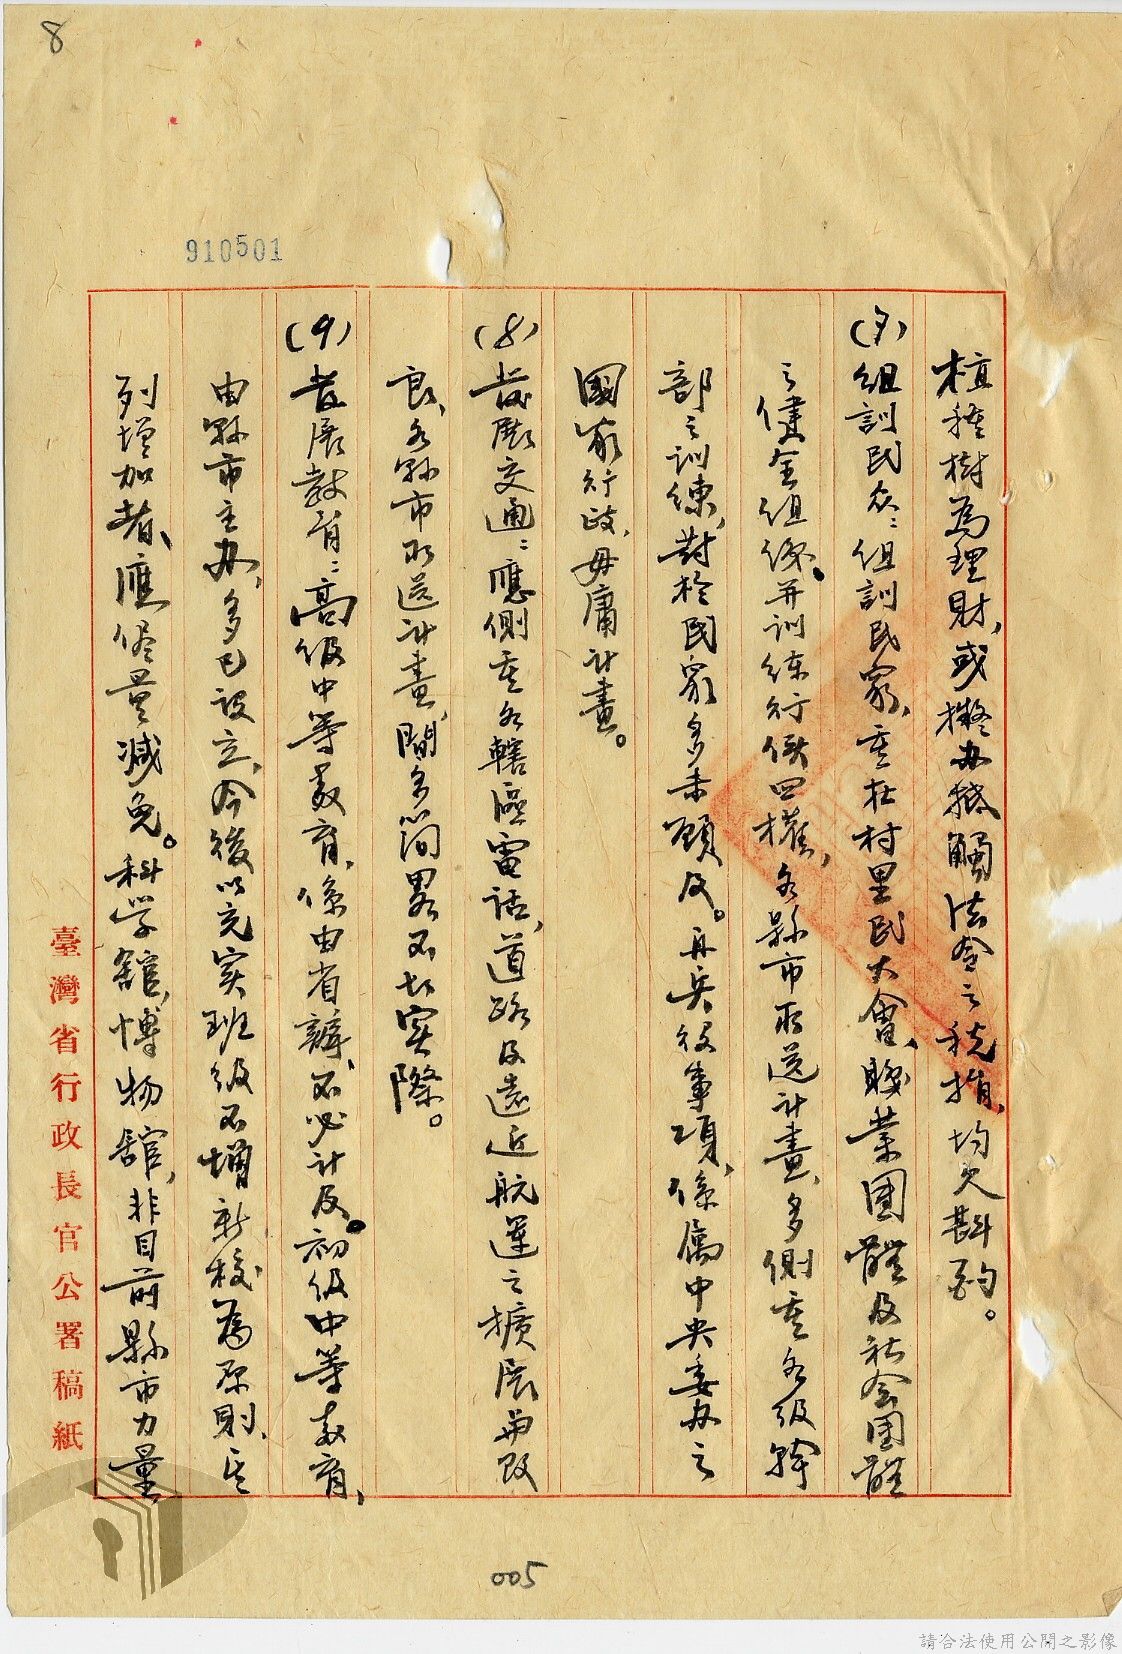 8
910501
植種樹為理財，或擬办抵觸法令之稅捐，均欠斟酌。
(7)組訓民众：組訓民眾，重在村里民大會、職業團體及社会团體
之健全組織。并訓練行使四權，各縣市所送計畫，多側重各級幹
部之訓練，對於民眾多未顧及。再兵役事項，係屬中央委办之
國家行政，毋庸計畫。
(8)發展交通：應側重各轄區電話，道路及遠近航運之擴展与改
良，各縣市所送計畫，間多簡畧不切实際。
(9)發展教育：高級中等教育，係由省辦，不必計及。初級中等教育，
由縣市主办，多已設立，今後以充实班級不增新校為原則，其
列增加者，應侭量减免。科学舘，博物舘，非目前縣市力量
臺灣省行政長官公署稿紙
005
請合法使用公開之影像